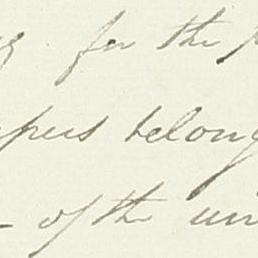 for the
pers belong
of the uni